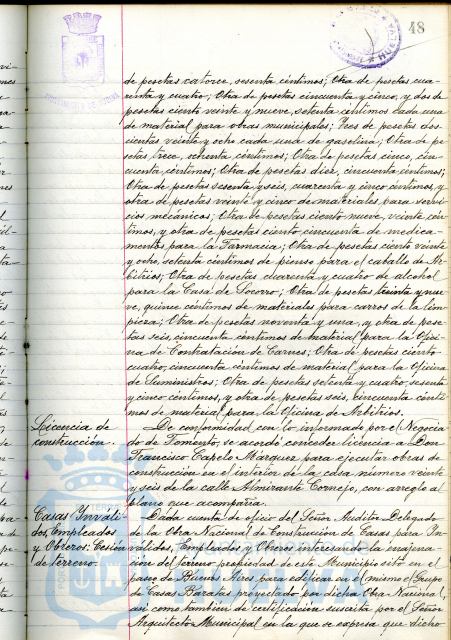 48
de pesetas catorce, sesenta céntimos; Otra de pesetas cua-
renta y cuatro; Otra de pesetas cincuenta y cinco, y dos de
pesetas ciento veinte y nueve, setenta céntimos cada una
de material para obras municipales; Tres de pesetas dos-
cientas veinte y ocho cada una de gasolina; Otra de pe-
setas trece, ochenta céntimos; Otra de pesetas cinco, cin-
cuenta céntimos; Otra de pesetas diez, cincuenta céntimos;
Otra de pesetas sesenta y seis, cuarenta y cinco céntimos, y
otra de pesetas veinte y cinco de materiales para servi-
cios mecánicos; Otra de pesetas ciento nueve, veinte cén-
timos, y otra de pesetas ciento cincuenta de medica-
mentos para la Farmacia; Otra de pesetas ciento veinte
y ocho, setenta céntimos de pienso para el caballo de Ar-
bitrios; Otra de pesetas cuarenta y cuatro de alcohol
para la Casa de Socorro; Otra de pesetas treinta y nue
ve, quince céntimos de materiales para carros de la lim-
pieza; Otra de pesetas noventa y una, y otra de pese
tas seis, cincuenta céntimos de material para la Ofici-
na de Contratación de Carnes; Otra de pesetas ciento
cuatro, cincuenta céntimos de material para la Oficina
de Suministros; Otra de pesetas setenta y cuatro, sesenta
y cinco céntimos, y otra de pesetas seis, cincuenta cénti-
mos de material para la Oficina de Arbitrios.
Licencia de
construcción.
De conformidad con lo informado por el Negocia
do de Fomento, se acordó conceder licencia a Don
Francisco Capelo Márquez para ejecutar obras de
construcción en el interior de la casa número veinte
y seis de la calle Almirante Cornejo, con arreglo al
plano que acompaña.
Casas Inváli-
dos, Empleados
y Obreros: Cesión
de terreno.
Dada cuenta de oficio del Señor Auditor Delegado
de la Obra Nacional de Construcción de Casas para In-
válidos, Empleados y Obreros interesando la enajena-
ción del terreno propiedad de este Municipio sito en el
paseo de Buenos Aires para edificar en el mismo el Grupo
de Casas Baratas proyectado por dicha Obra Nacional,
así como también de certificación suscrita por el Señor
Arquitecto Municipal en la que se expresa que dicho